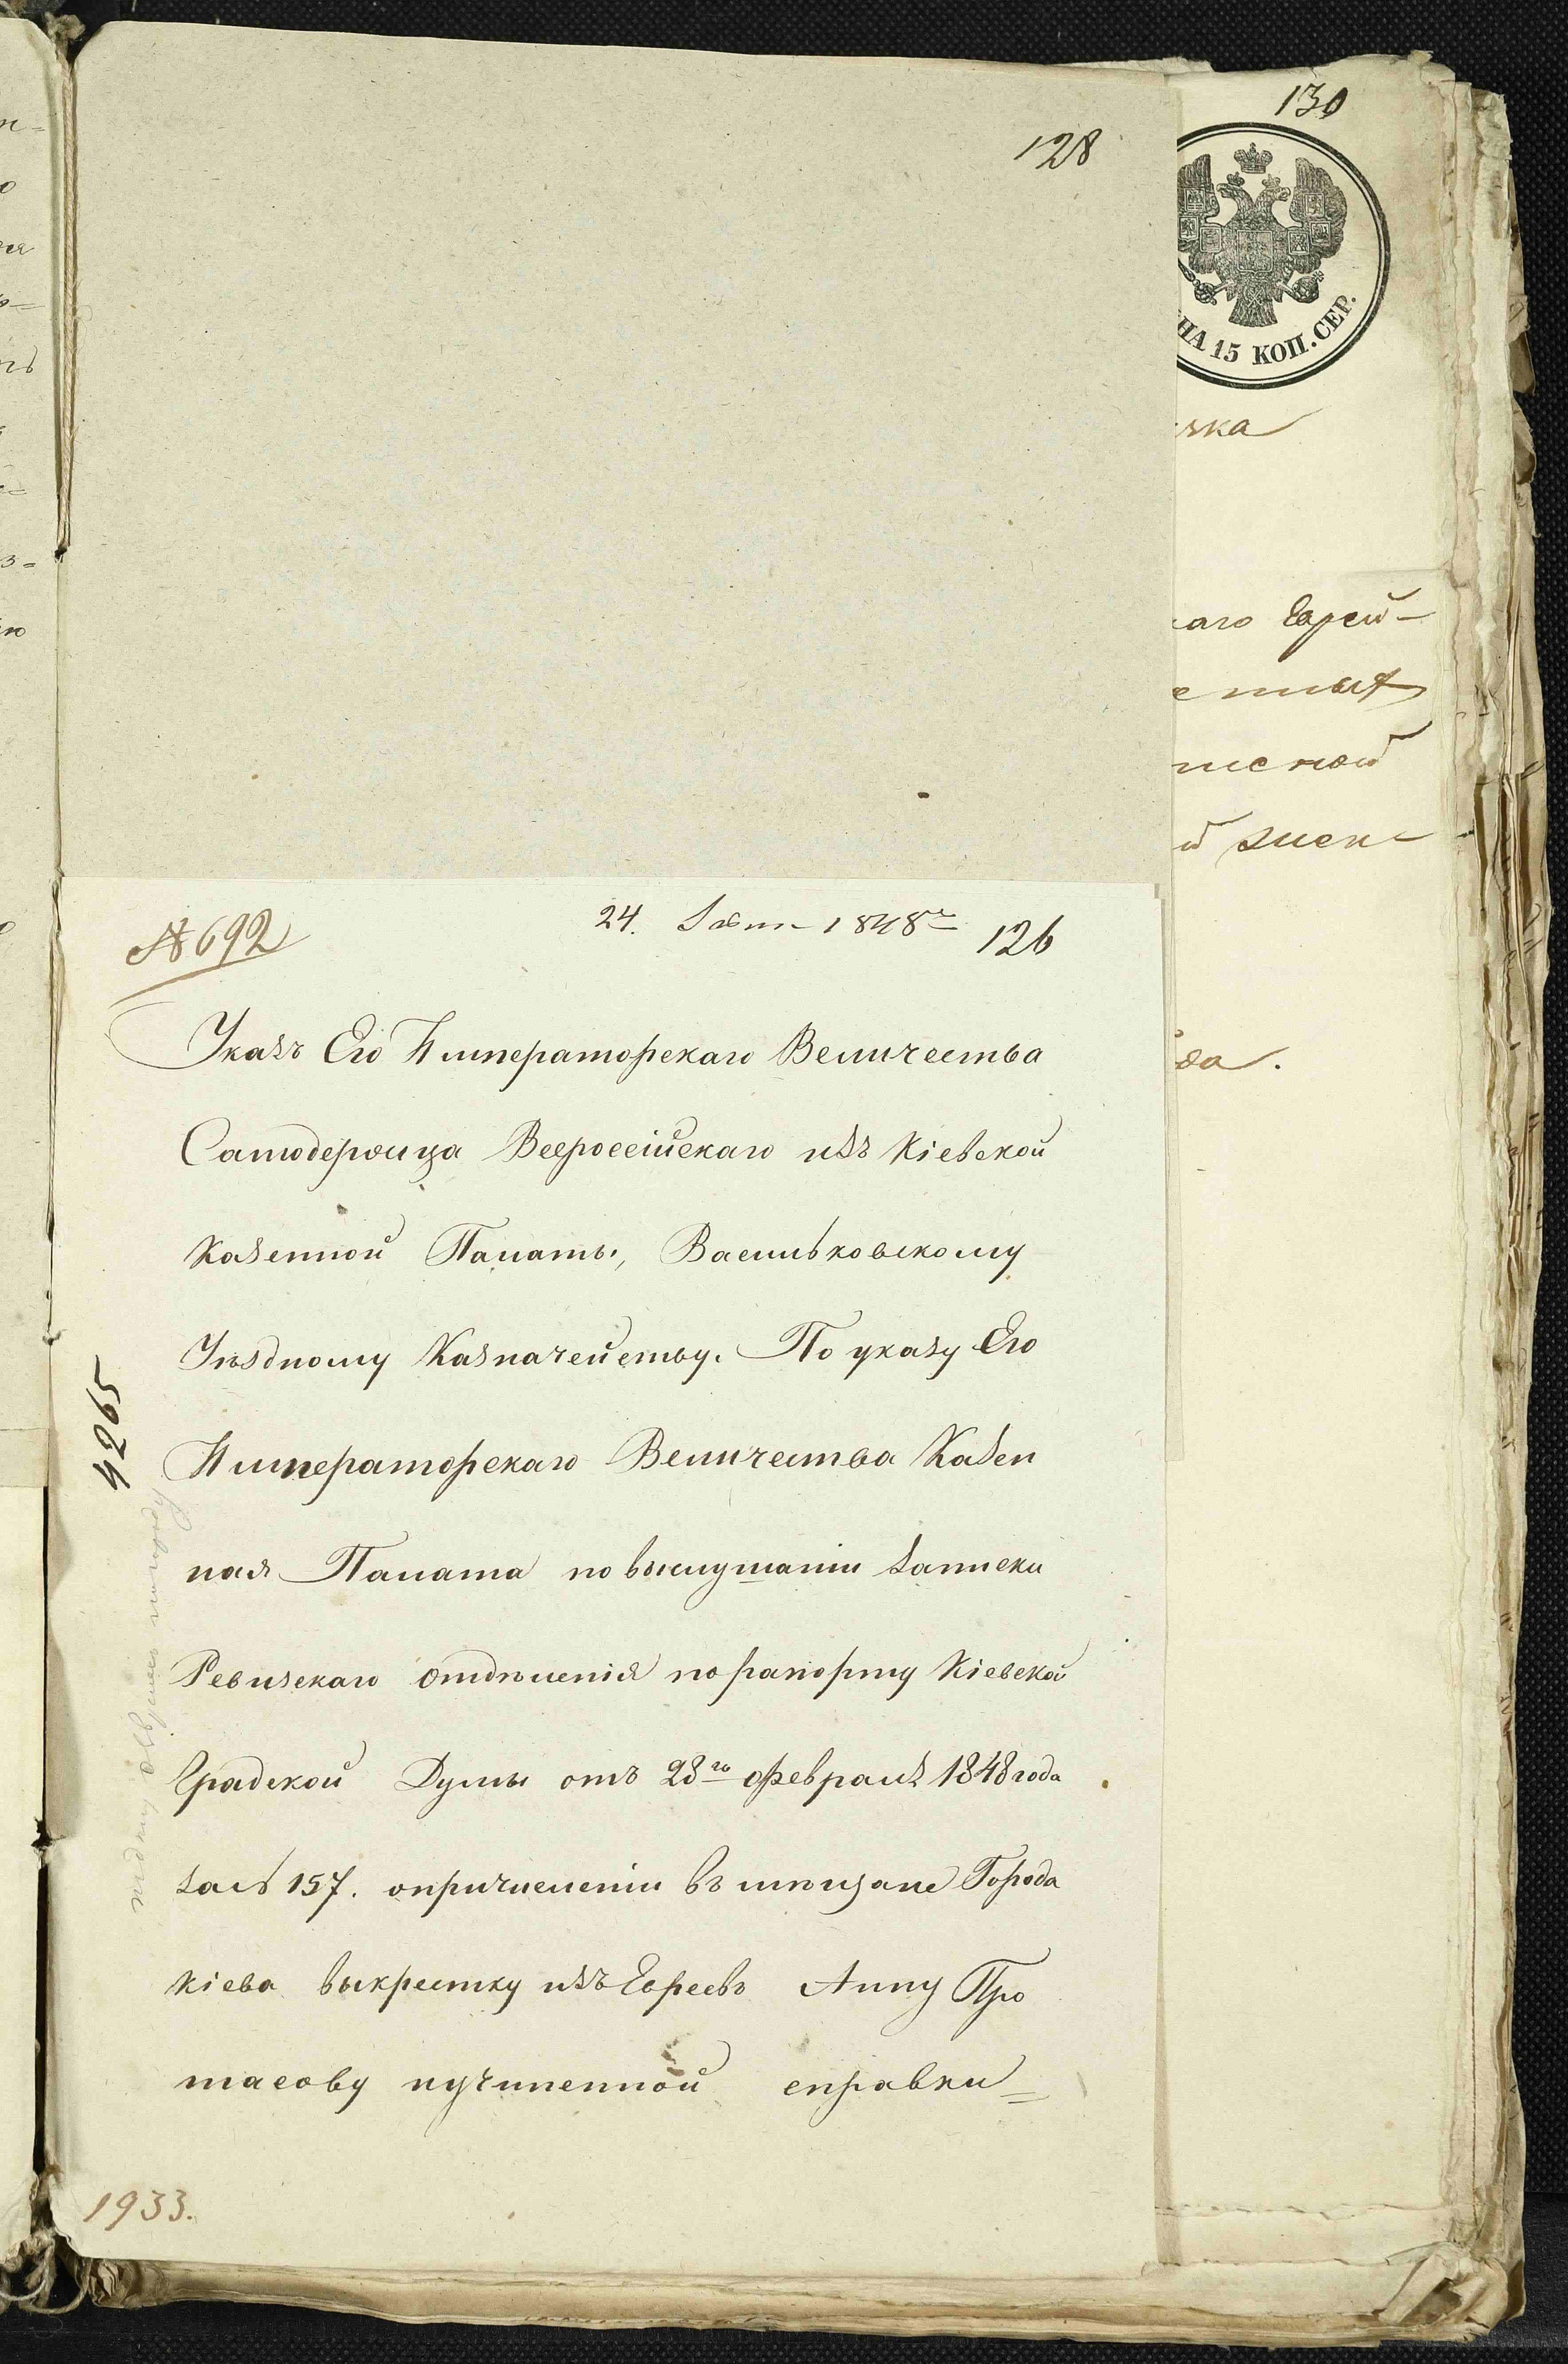 128
130
НА 15 КОП. СЕР.
аго Еврей-
№ 692
24. 1848г
126
Указъ Его Императорскаго Величества
Самодержца Всероссійскаго изъ Кіевской
Казенной Палаты, Васильковскому
Уѣздному Казначейству. По указу Его
Императорскаго Величества Казен
ная Палата по выслушаніи записки
Ревизскаго Отдѣленія по рапорту Кіевской
Градской Думы отъ 28го февраля 1848 года
за № 157. о причисленіи въ мѣщане Города
Кіева выкрестку изъ Евреевъ Анну Про
тасову и учиненной справки=
4265
1933.